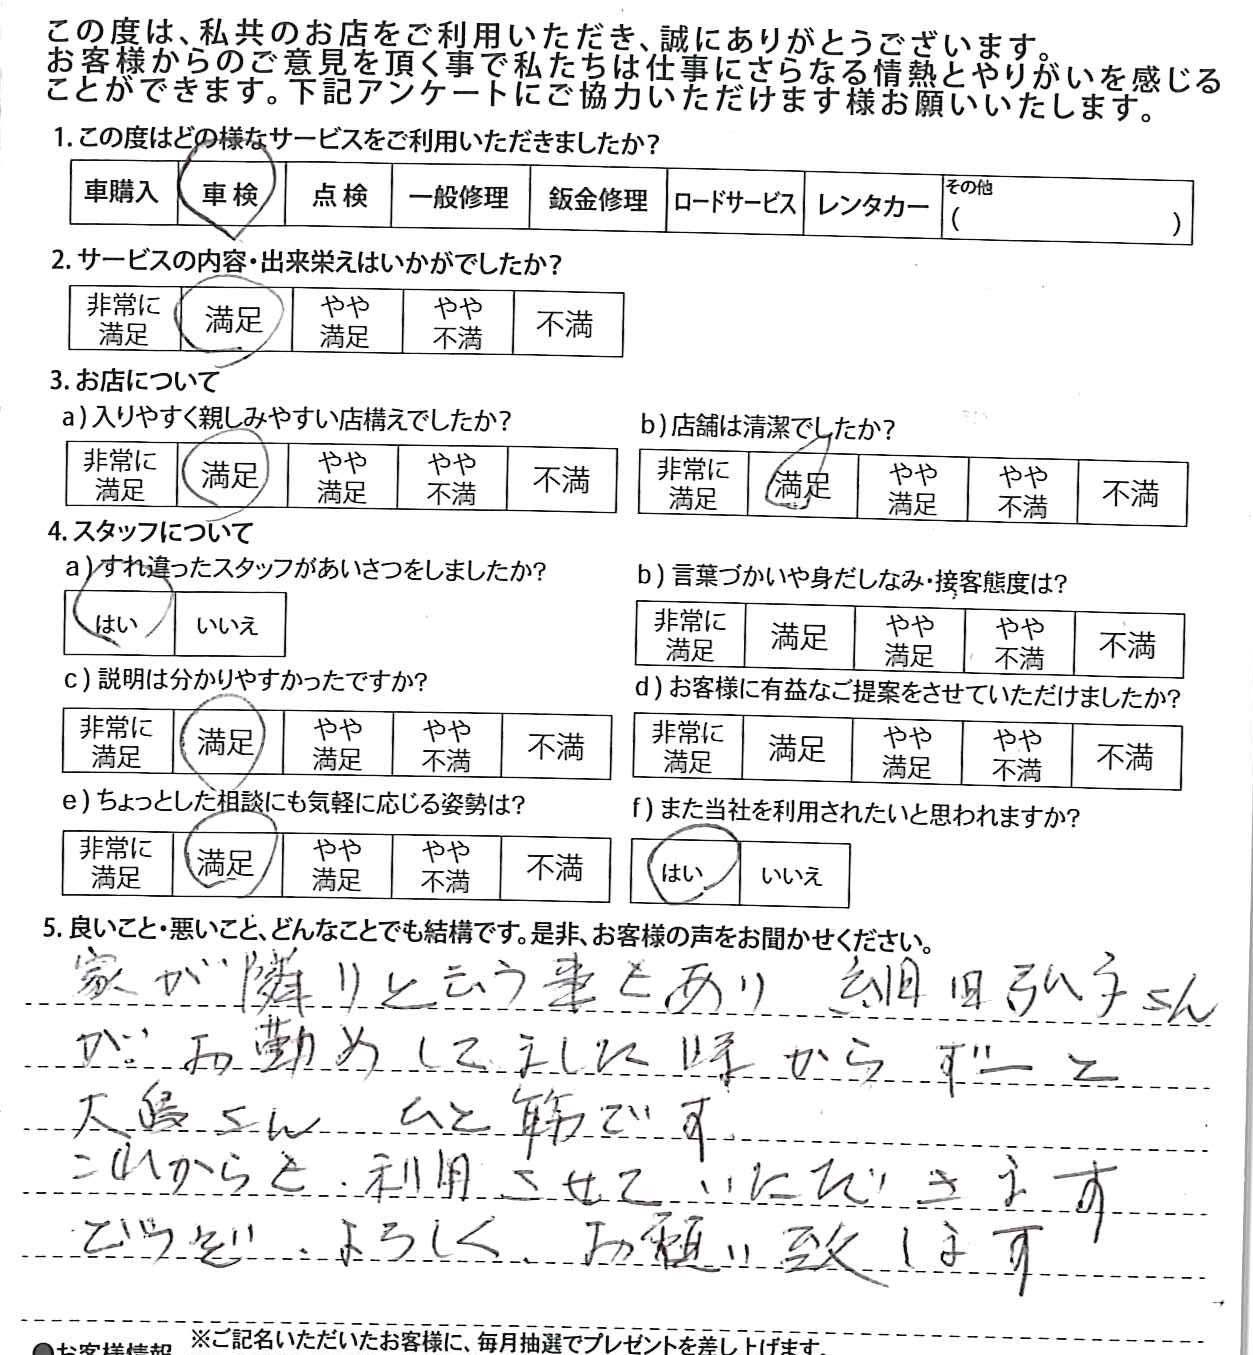 この度は、私共のお店をご利用いただき、誠にありがとうございます。
お客様からのご意見を頂く事で私たちは仕事にさらなる情熱とやりがいを感じる
ことができます。下記アンケートにご協力いただけます様お願いいたします。
1.この度はどの様なサービスをご利用いただきましたか?
車購入 車検 点検 一般修理 鈑金修理 ロードサービス レンタカー その他( )
2.サービスの内容・出来栄えはいかがでしたか?
非常に満足 満足 やや満足 やや不満 不満
3.お店について
a)入りやすく親しみやすい店構えでしたか?
非常に満足 満足 やや満足 やや不満 不満
b)店舗は清潔でしたか?
非常に満足 満足 やや満足 やや不満 不満
4.スタッフについて
a)すれ違ったスタッフがあいさつをしましたか?
はい いいえ
b)言葉づかいや身だしなみ・接客態度は?
非常に満足 満足 やや満足 やや不満 不満
c)説明は分かりやすかったですか?
非常に満足 満足 やや満足 やや不満 不満
d)お客様に有益なご提案をさせていただけましたか?
非常に満足 満足 やや満足 やや不満 不満
e)ちょっとした相談にも気軽に応じる姿勢は?
非常に満足 満足 やや満足 やや不満 不満
f)また当社を利用されたいと思われますか?
はい いいえ
5.良いこと・悪いこと、どんなことでも結構です。是非、お客様の声をお聞かせください。
家が隣りと云う事もあり 田弘子さん
がお勤めしてました時からずーと
大島さんひと筋です
これからも、利用させていただきます
どうぞ、よろしく、お願い致します
●お客様情報 ※ご記名いただいたお客様に、毎月抽選でプレゼントを差し上げます。